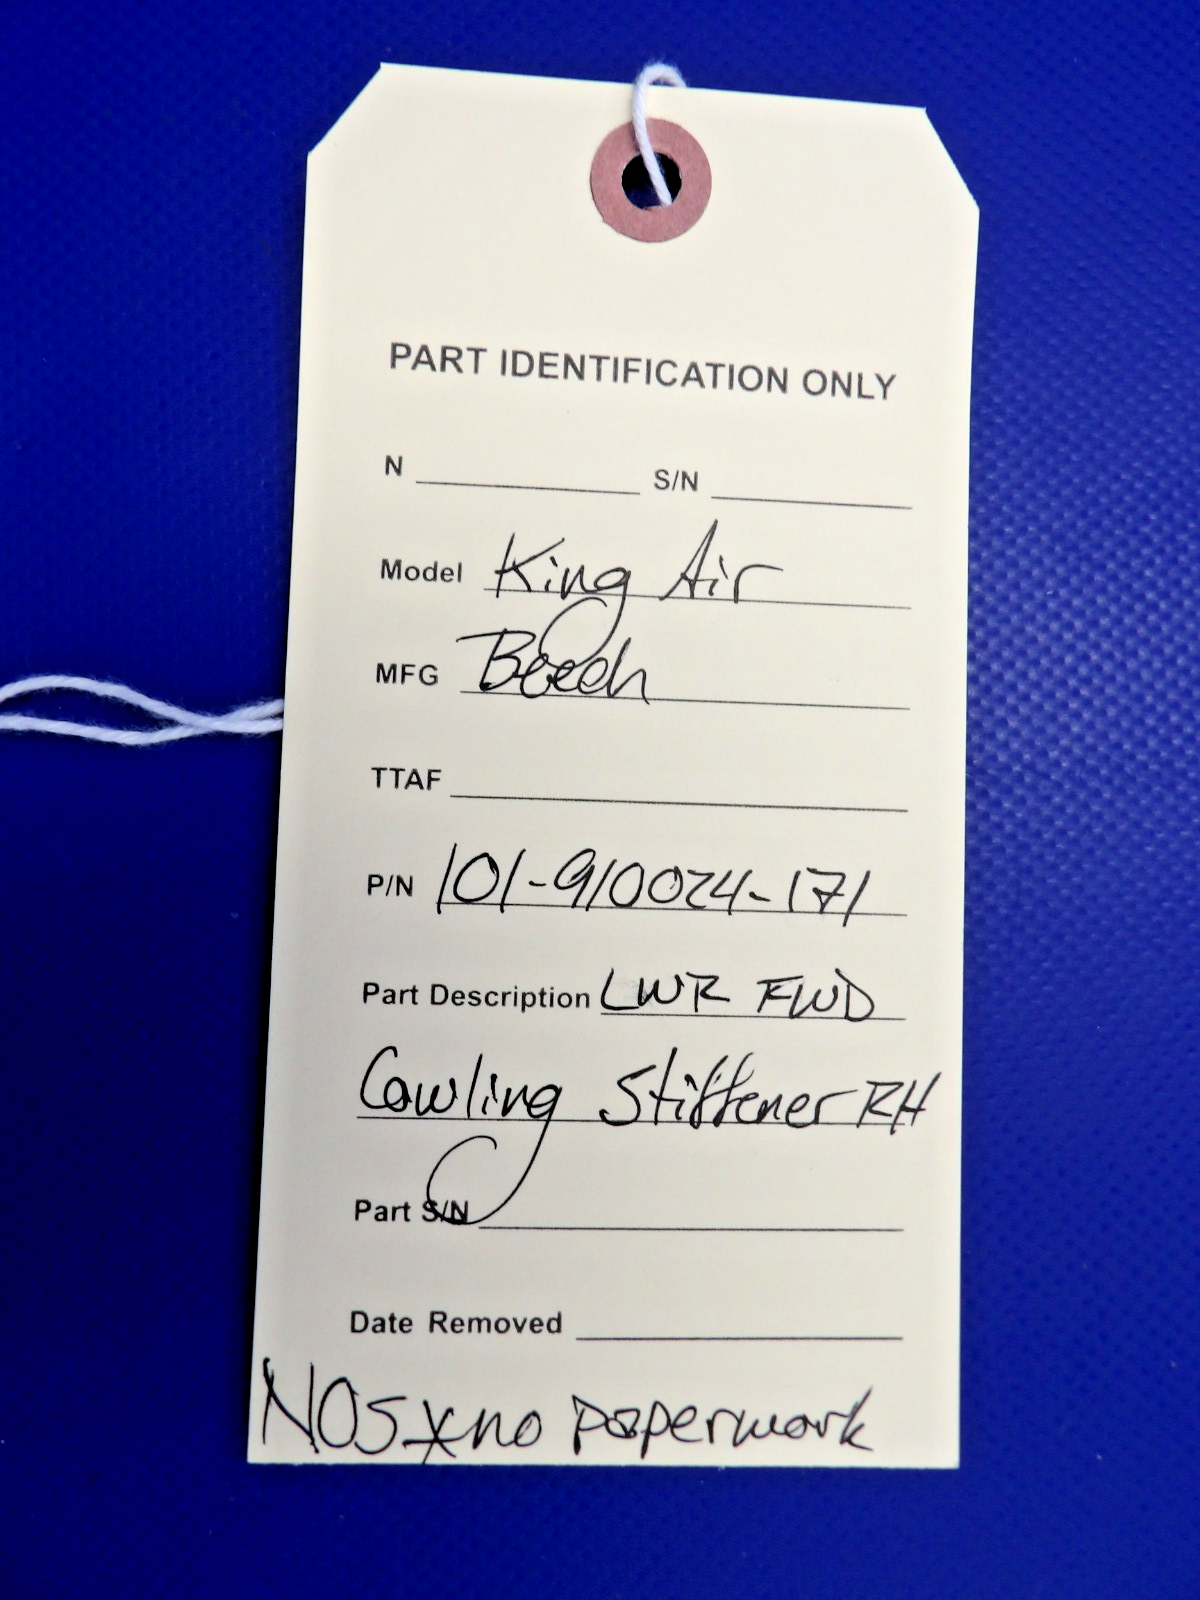 PART IDENTIFICATION ONLY
N S/N
Model King Air
MFG Beech
TTAF
P/N 101-910024-171
Part Description LWR FWD
Cowling Stiffener RH
Part S/N
Date Removed
NOS * no paperwork